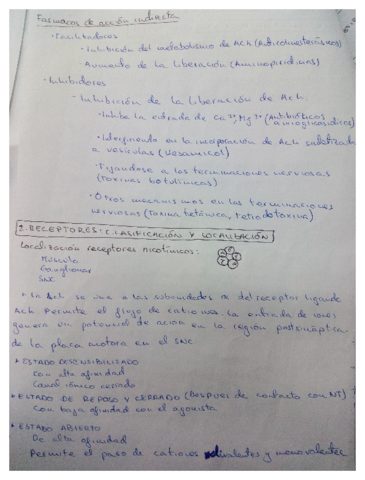 Farmacos de acción indirecta
· Facilitadores
· Inhibición del metabolismo de Ach (Anticolinesterásicos)
· Aumento de la liberación (Aminopiridinas)
· Inhibidores
- Inhibición de la liberación de Ach.
· Inhibe la entrada de Ca²⁺, Mg²⁺ (Antibióticos aminoglicosídicos)
· Interfiriendo en la incorporación de Ach sintetizada
a vesículas (Vesamicol)
· Fijandose a las terminaciones nerviosas
(Toxinas botulínicas)
· Otros mecanismos en las terminaciones
nerviosas (Toxina tetánica, tetrodotoxina)
2. RECEPTORES: CLASIFICACIÓN Y LOCALIZACIÓN
Localización receptores nicotínicos:
Músculo
Ganglionar
SNC
· La Ach se une a las subunidades α del receptor ligando
Ach permite el flujo de cationes la entrada de iones
genera un potencial de acción en la región postsináptica
de la placa motora en el SNC.
· ESTADO DESENSIBILIZADO
Con alta afinidad
Canal iónico cerrado
· ESTADO DE REPOSO Y CERRADO (Despues de contacto con NT)
Con baja afinidad con el agonista
· ESTADO ABIERTO
De alta afinidad
Permite el paso de cationes divalentes y monovalentes